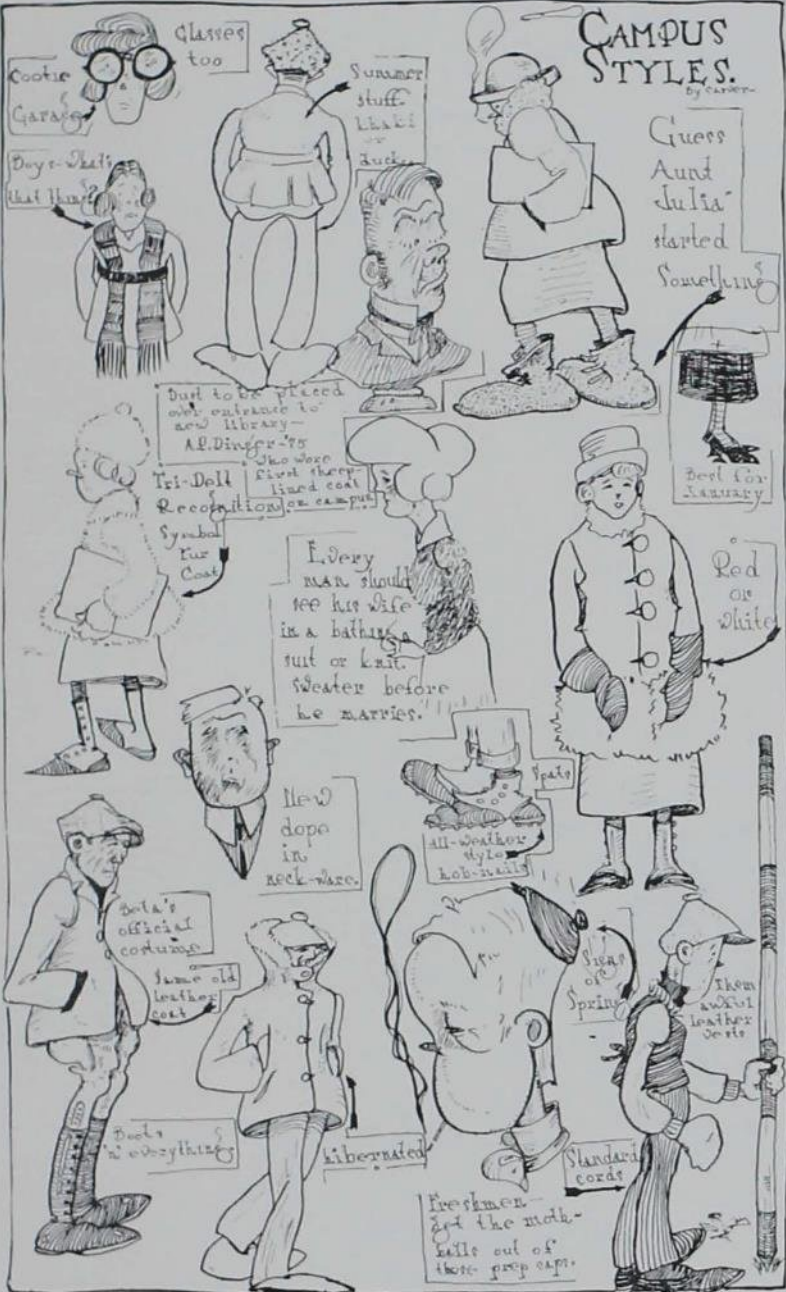 CAMPUS
STYLES.
By Carver
Glasses
too
Cootie
Garage
Summer
stuff.
khaki
or
ducks
Boys-what's
that thing?
Guess
Aunt
Julia
started
Something
Best for
January
Bust to be placed
over entrance to
new library—
A.P. Dinger-'75
who wore
first sheep-
lined coat
on campus
Tri-Delt
Recognition
Symbol
Fur
Coat
Every
man should
see his wife
in a bathing
suit or knit
sweater before
he marries."
Red
or
white
New
dope
in
neck-ware.
Spats
All-weather
style
hob-nails
Beta's
official
costume
Same old
leather
coat
Boots
'n' everything
hibernated
Signs
of
Spring
Them
awful
leather
vests
Standard
cords
Freshmen—
get the moth-
balls out of
those prep caps.